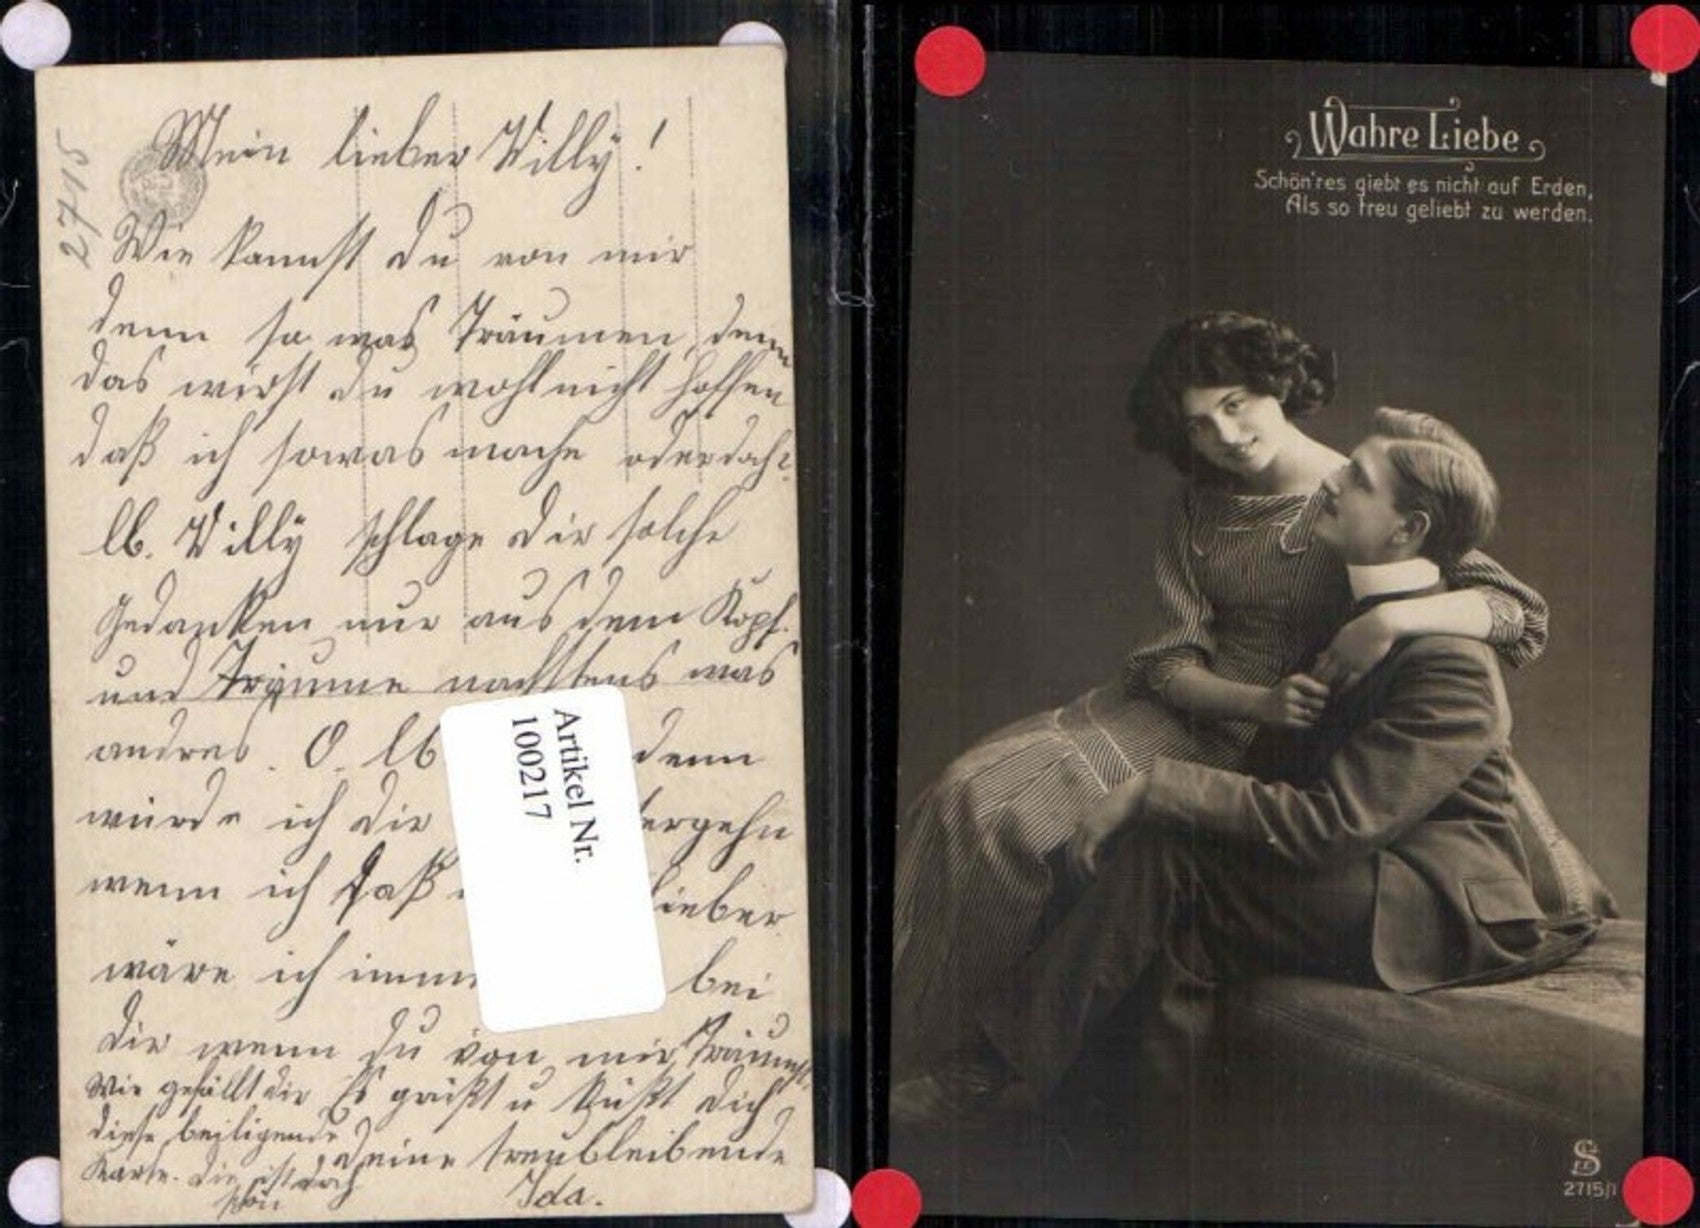 2715
Mein lieber Willy!
Wie kannst du von mir
denn so was Träumen, denn
das wirst du wohl nicht hoffen
daß ich sowas mache oder doch?
lb. Willy schlage dir solche
Gedanken nur aus dem Kopf.
und Träume nächstens was
andres. O. lb denn
würde ich dir ergehn
wenn ich daß lieber
wäre ich imm bei
dir wenn du von mir Träumst.
Wie gefällt dir
diese beiligende
Karte. die ist doch
schön
Es grüßt u küßt dich
deine treubleibende
Ida.
Artikel Nr.
100217
Wahre Liebe
Schön'res giebt es nicht auf Erden,
Als so treu geliebt zu werden.
S
2715/1